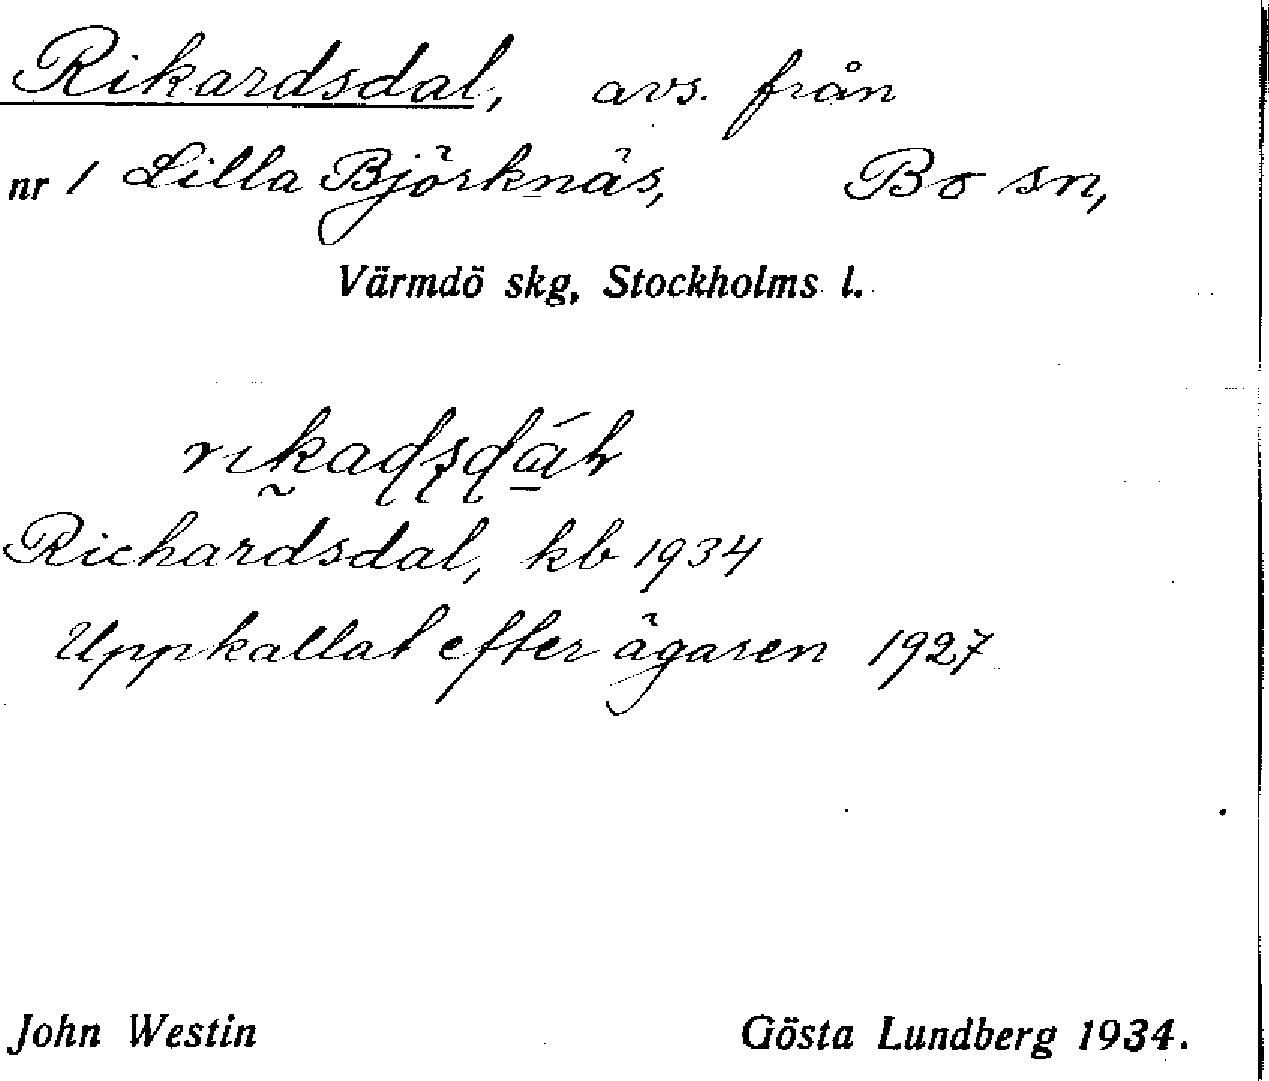 Rikardsdal, avs. från
nr 1 Lilla Björknäs, Bo sn,
Värmdö skg, Stockholms l.
Richardsdal, kb 1934
Uppkallat efter ägaren 1927
John Westin Gösta Lundberg 1934.